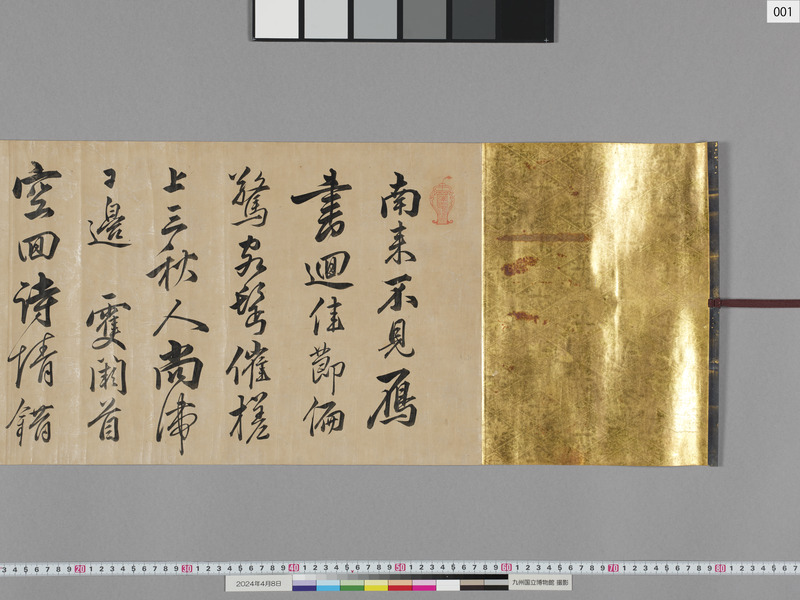 001
南来不見鴈
書迴佳節偏
驚客髩催槎
上三秋人尚滞
日邊雙闕首
空回詩情錯
2024年4月8日
九州国立博物館 撮影